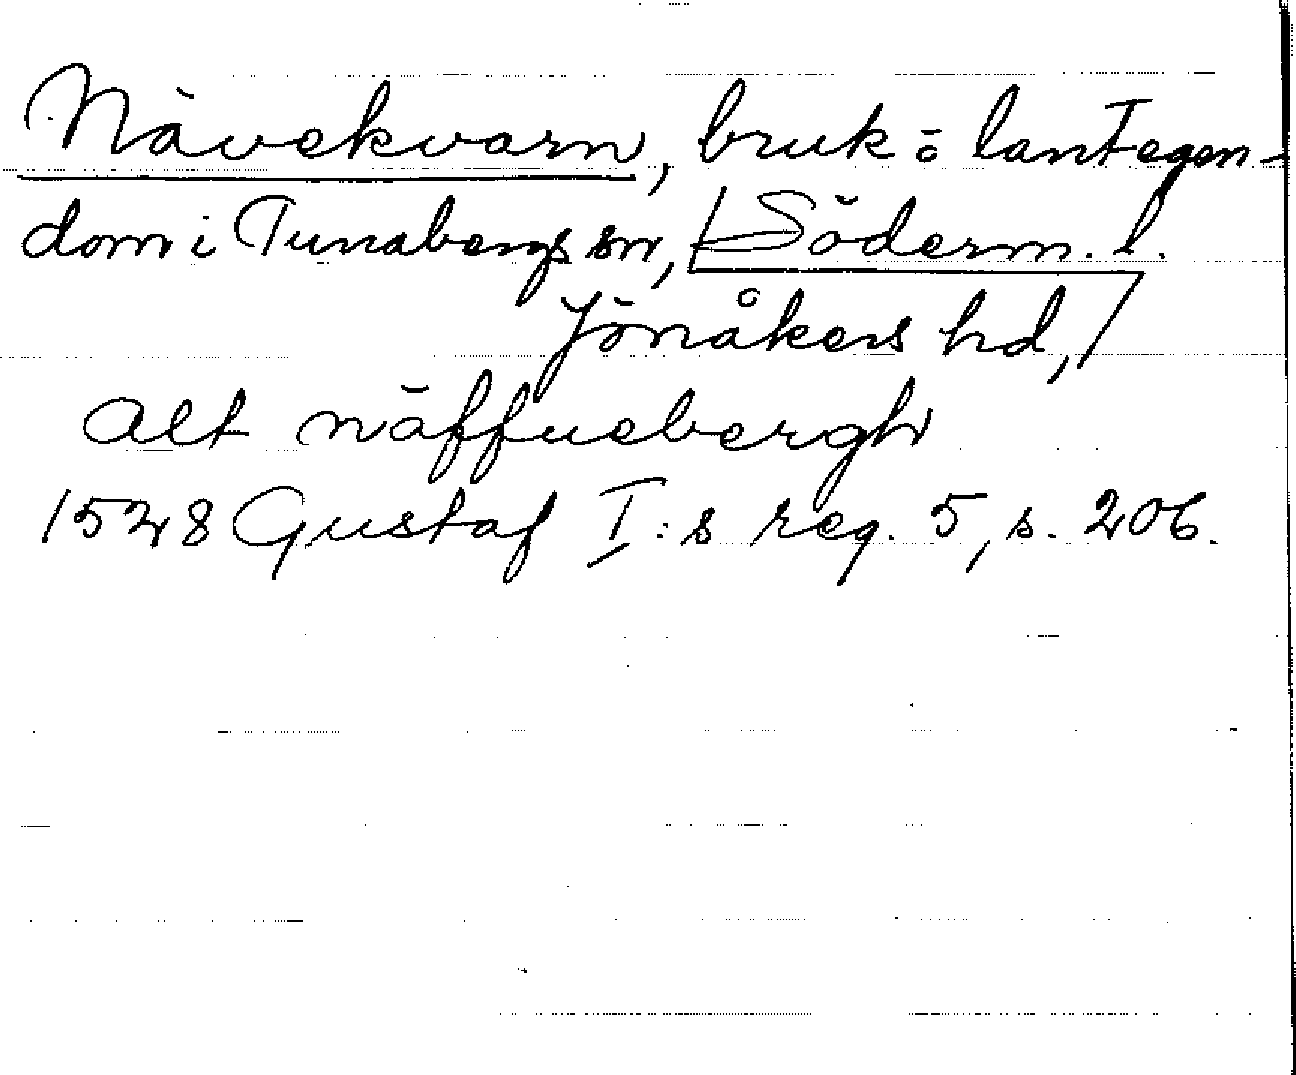 Nävekvarn, bruk ö lantegen-
dom i Tunabergs sn, Söderm. l.
Jönåkers hd,
alt näffuebergh
1528 Gustaf I:s reg. 5, s. 206.